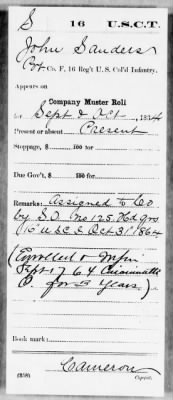 S 16 U.S.C.T.
John Sanders
Pvt Co. F, 16 Reg't U. S. Col'd Infantry.
Appears on
Company Muster Roll
for Sept & Oct, 1864
Present or absent Present
Stoppage, $ 100 for
Due Gov't, $ 100 for
Remarks: Assigned to Co
by S.O. No 125. Hd qrs
16" U.S.C.I. Oct 31" 1864
(Enrolled &
Sept 17 64 Cincinnatti
O. for 3 Years)
Book mark:
Cameron
(358) Copyist.